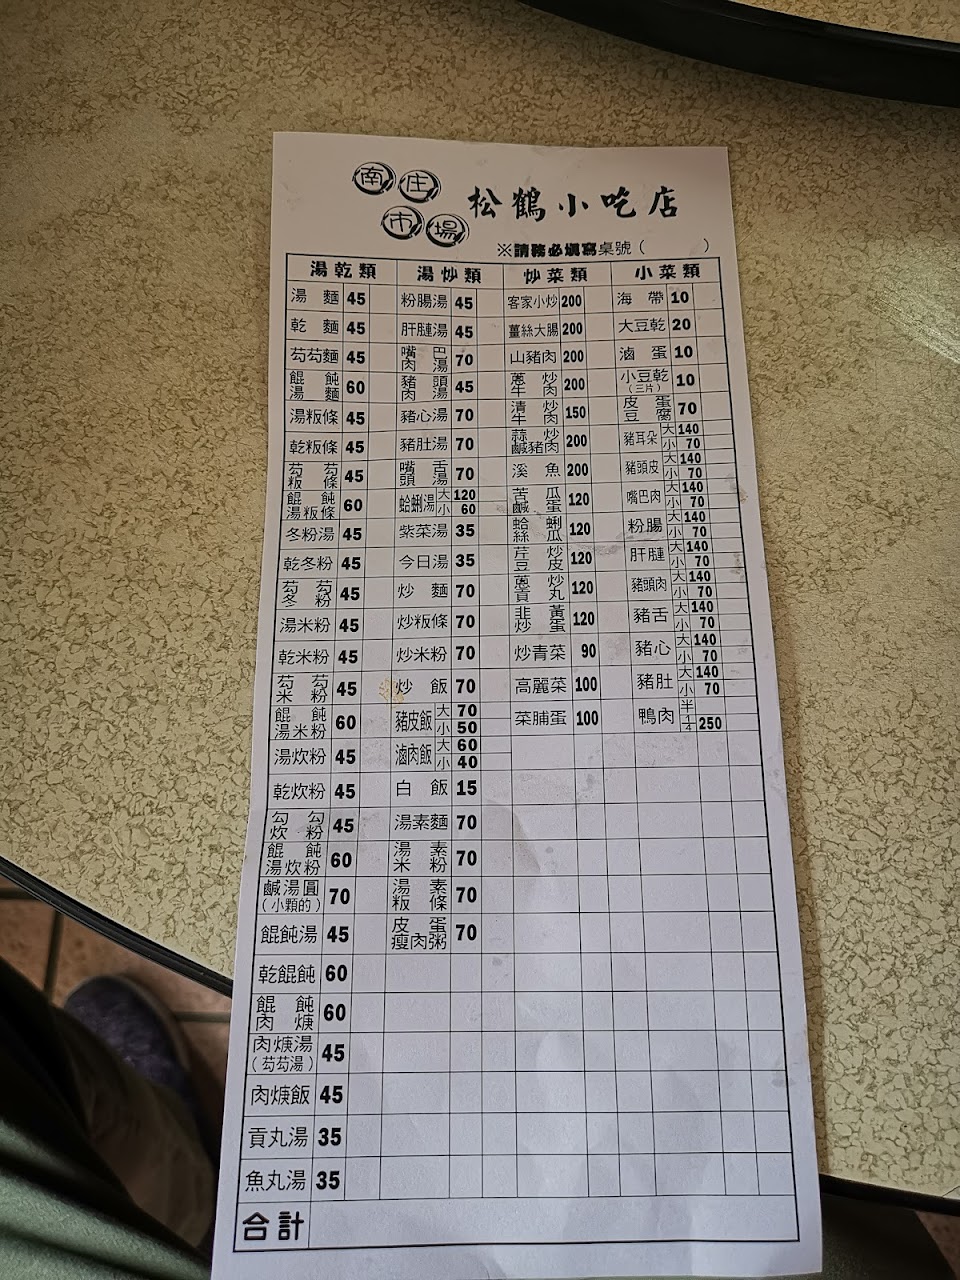 南庄
市場
松鶴小吃店
※請務必填寫桌號（　　）
湯乾類
湯麵 45
乾麵 45
芶芶麵 45
餛飩湯麵 60
湯粄條 45
乾粄條 45
芶芶粄條 45
餛飩湯粄條 60
冬粉湯 45
乾冬粉 45
芶芶冬粉 45
湯米粉 45
乾米粉 45
芶芶米粉 45
餛飩湯米粉 60
湯炊粉 45
乾炊粉 45
勾勾炊粉 45
餛飩湯炊粉 60
鹹湯圓（小顆的） 70
餛飩湯 45
乾餛飩 60
餛飩肉焿 60
肉焿湯（芶芶湯） 45
肉焿飯 45
貢丸湯 35
魚丸湯 35
合計
湯炒類
粉腸湯 45
肝膁湯 45
嘴巴肉湯 70
豬頭肉湯 45
豬心湯 70
豬肚湯 70
嘴舌頭湯 70
蛤蜊湯 大 120 小 60
紫菜湯 35
今日湯 35
炒麵 70
炒粄條 70
炒米粉 70
炒飯 70
豬皮飯 大 70 小 50
滷肉飯 大 60 小 40
白飯 15
湯素麵 70
湯素米粉 70
湯素粄條 70
皮蛋瘦肉粥 70
炒菜類
客家小炒 200
薑絲大腸 200
山豬肉 200
蔥炒牛肉 200
清炒牛肉 150
蒜炒鹹豬肉 200
溪魚 200
苦瓜鹹蛋 120
蛤蜊絲瓜 120
芹炒豆皮 120
蔥炒貢丸 120
韭黃炒蛋 120
炒青菜 90
高麗菜 100
菜脯蛋 100
小菜類
海帶 10
大豆乾 20
滷蛋 10
小豆乾（三片） 10
皮蛋豆腐 70
豬耳朵 大 140 小 70
豬頭皮 大 140 小 70
嘴巴肉 大 140 小 70
粉腸 大 140 小 70
肝膁 大 140 小 70
豬頭肉 大 140 小 70
豬舌 大 140 小 70
豬心 大 140 小 70
豬肚 大 140 小 70
鴨肉 半 1/4 250